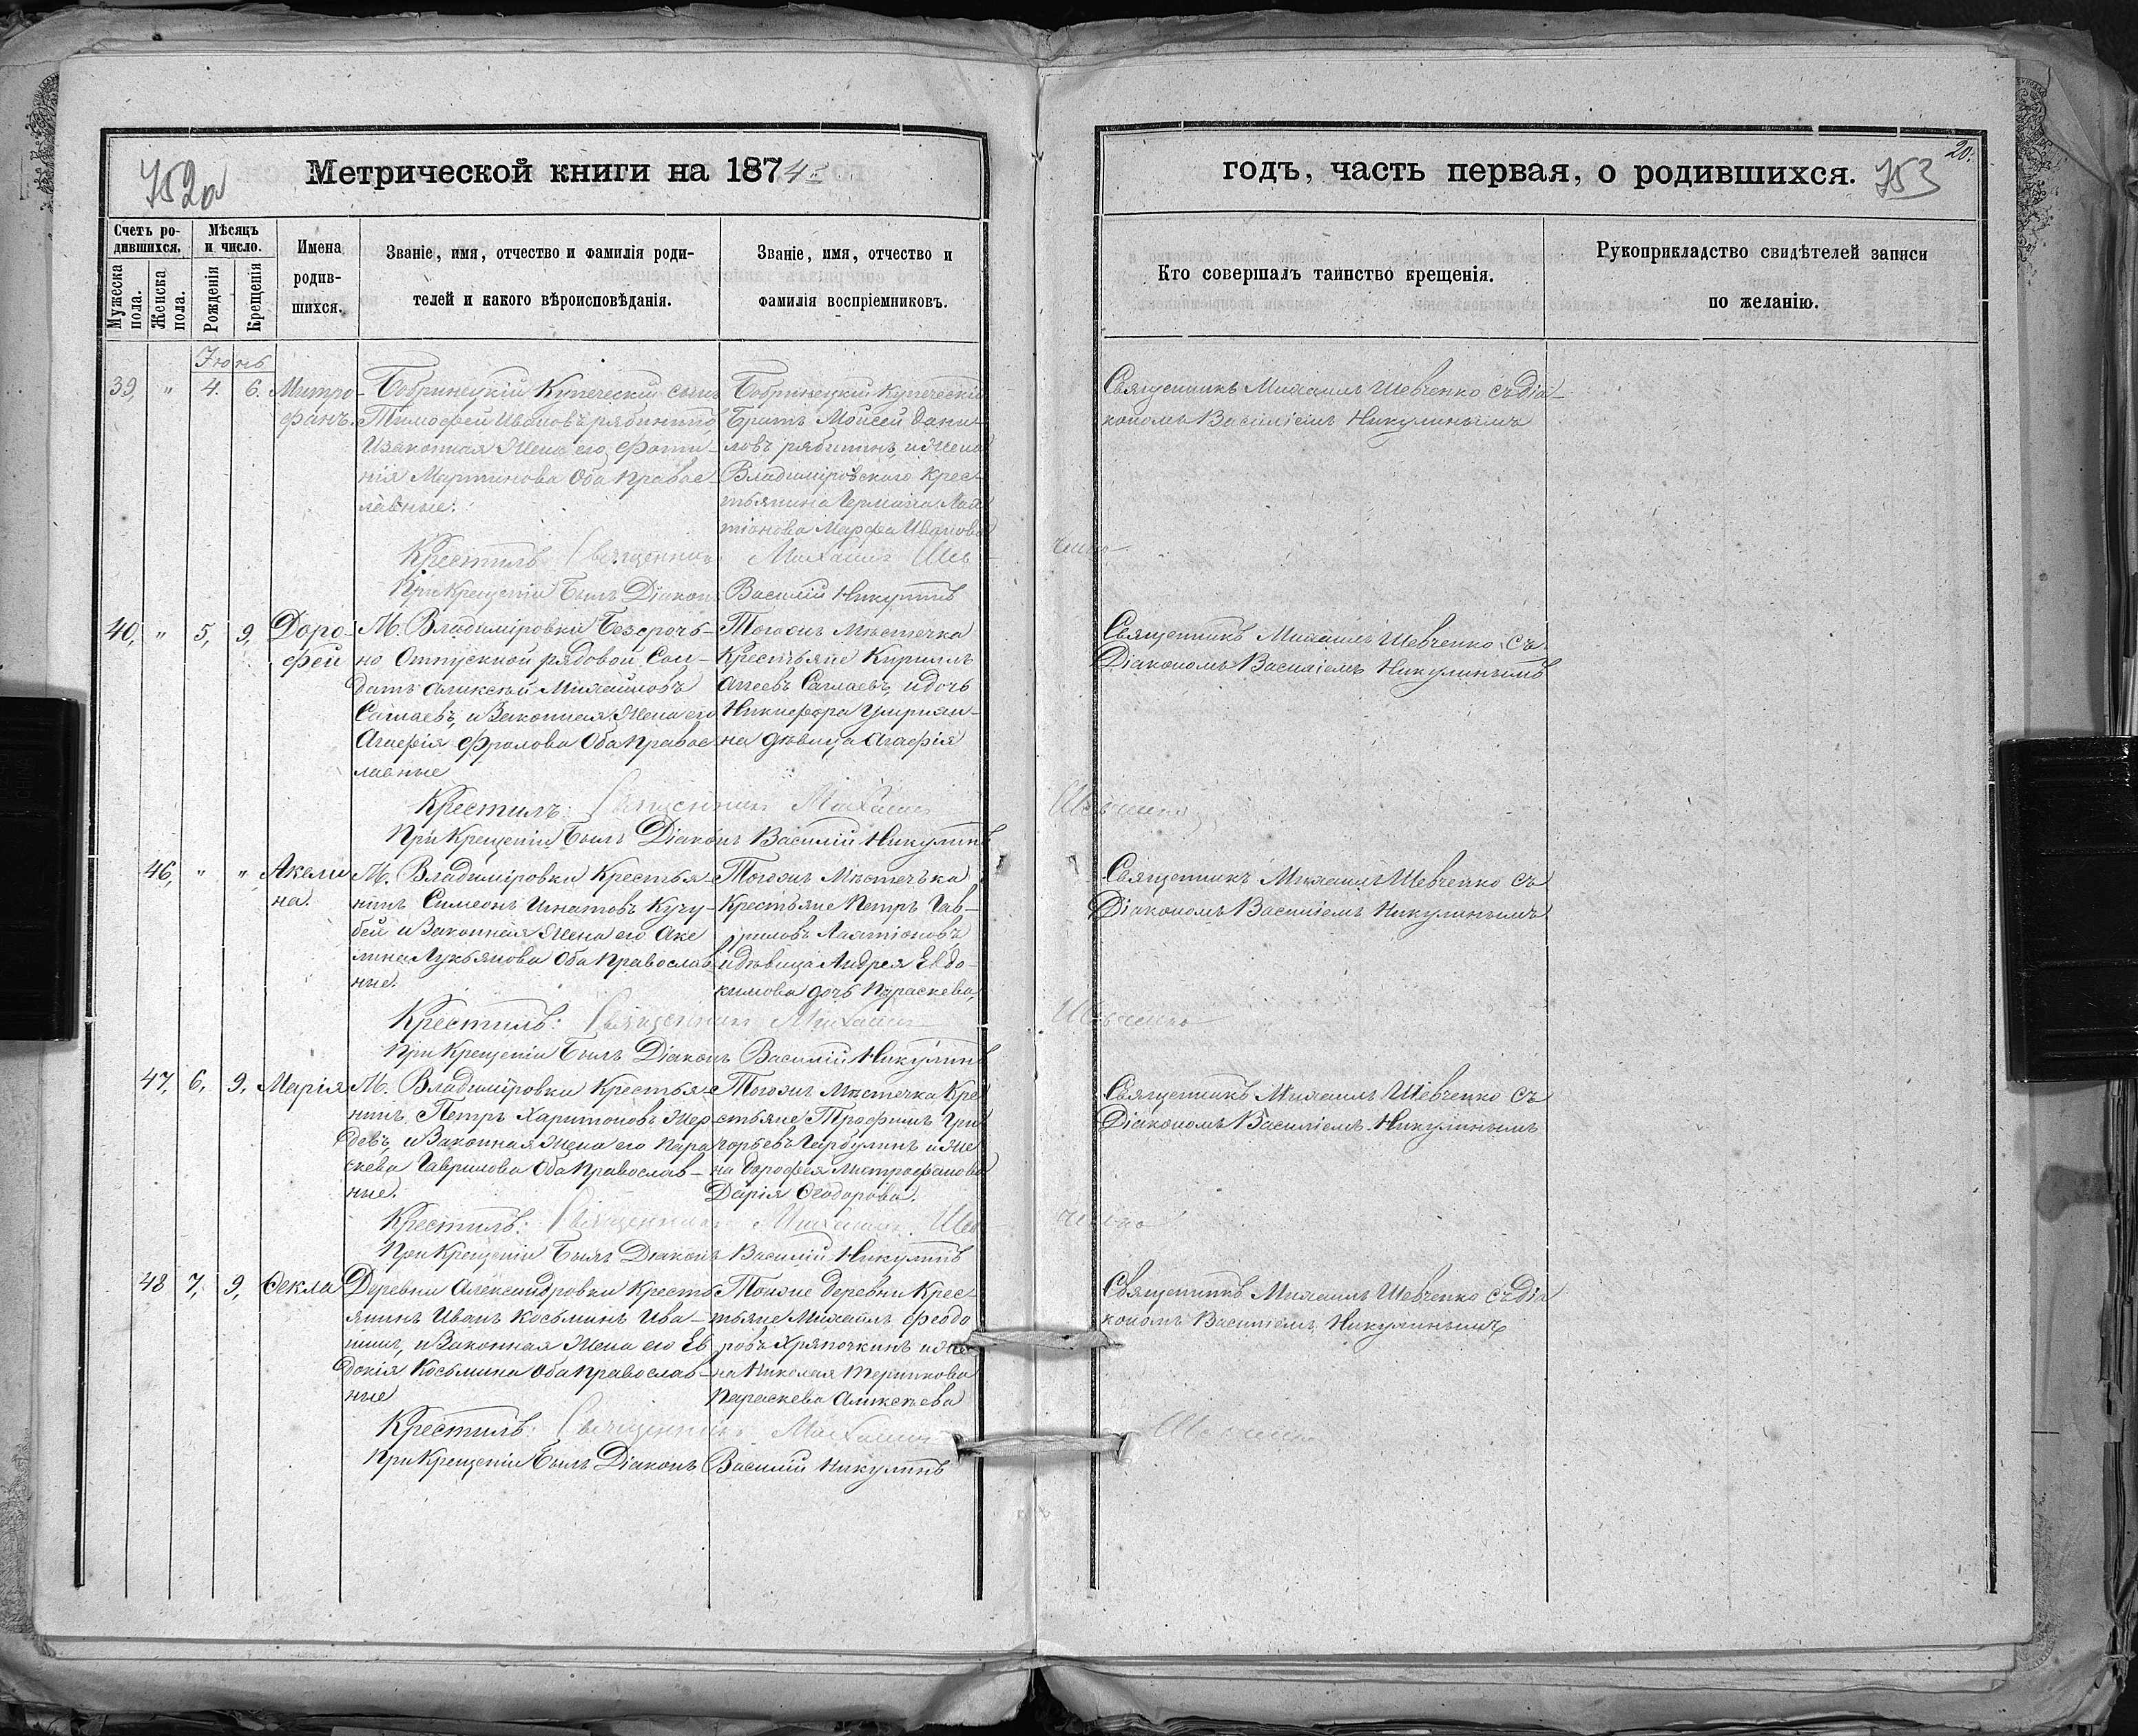 752а
Метрической книги на 1874 г.
Счетъ ро-
дившихся.
Мѣсяцъ
и число.
Мужеска
пола.
Женска
пола.
Рожденія
Крещенія
Имена
родив-
шихся.
Званіе, имя, отчество и фамилія роди-
телей и какого вѣроисповѣданія.
Званіе, имя, отчество и
фамилія воспріемниковъ.
Іюнь
39, " 4. 6. Митро-
фанъ.
Бобринецкій Купеческій сынъ
Тимофей Ивановъ рябининъ
И законная Жена его Фоти-
нія Мартинова Оба Правос-
лавные.
Бобринецкій Купеческій
Братъ Моисей Дани-
ловъ рябининъ, и Жена
Владиміровского Крес-
тьянина Германа
Марфа Иванова
Крестилъ: Священникъ Михаилъ Шев-
ченко
При Крещеніи Былъ Діаконъ Василій Никулинъ
40, " 5, 9, Доро-
фей
М. Владиміровки Безсроч-
но Отпускной рядовой Сол-
датъ Алексѣй Михайловъ
Саглаевъ, и Законная Жена его
Агафія Фролова Оба Правос
лавные
Тогожъ Мѣстечка
Крестьяне Кириллъ
Агеевъ Саглаевъ, и дочь
Никифора
на дѣвица Агафія
Крестилъ: Священникъ Михаилъ
Шевченко
При Крещеніи Былъ Діаконъ Василій Никулинъ
46, " " Акели
на.
М. Владиміровки Крестья-
нинъ Симеонъ Игнатовъ Кучу-
бей и Законная Жена его Аке
лина Лукьянова Оба Православ
ные.
Тогожъ Мѣстечка
Крестьяне Петръ Гав-
риловъ Лаятіоновъ
и дѣвица Андрея Евдо-
кимова дочь Параскева,
Крестилъ: Священникъ Михаилъ
Шевченко
При Крещеніи Былъ Діаконъ Василій Никулинъ
47, 6, 9, Марія
М. Владиміровки Крестья-
нинъ Петръ Харитоновъ Жер-
девъ, и Законная Жена его Пара
скева Гаврилова Оба Православ-
ные.
Тогожъ Мѣстечка Кре
стьяне Трофимъ Гри
горьевъ Гарбулинъ и Же
на Дорофея Митрофанова
Дарія Феодорова.
Крестилъ: Священникъ Михаилъ Шев-
ченко
При Крещеніи Былъ Діаконъ Василій Никулинъ
48 7, 9, Ѳекла
Деревни Александровки Кресть
янинъ Иванъ Косьминъ Ива-
нинъ, и Законная Жена его Ев
докія Косьмина Оба Православ-
ные
Тойже деревни Крес-
тьяне Михаилъ Феодо
ровъ Хряпочкинъ и Же
на Николая Терникова
Параскева Алексѣева
Крестилъ: Священникъ Михаилъ
Шевченко
При Крещеніи Былъ Діаконъ Василій Никулинъ
20.
годъ, часть первая, о родившихся. 753
Кто совершалъ таинство крещенія.
Рукоприкладство свидѣтелей записи
по желанію.
Священникъ Михаилъ Шевченко съ Діа-
кономъ Василіемъ Никулинымъ
Священникъ Михаилъ Шевченко, Съ
Діакономъ Василіемъ Никулинымъ
Священникъ Михаилъ Шевченко Съ
Діакономъ Василіемъ Никулинымъ
Священникъ Михаилъ Шевченко Съ
Діакономъ Василіемъ Никулинымъ
Священникъ Михаилъ Шевченко Съ Діа
кономъ Василіемъ Никулинымъ